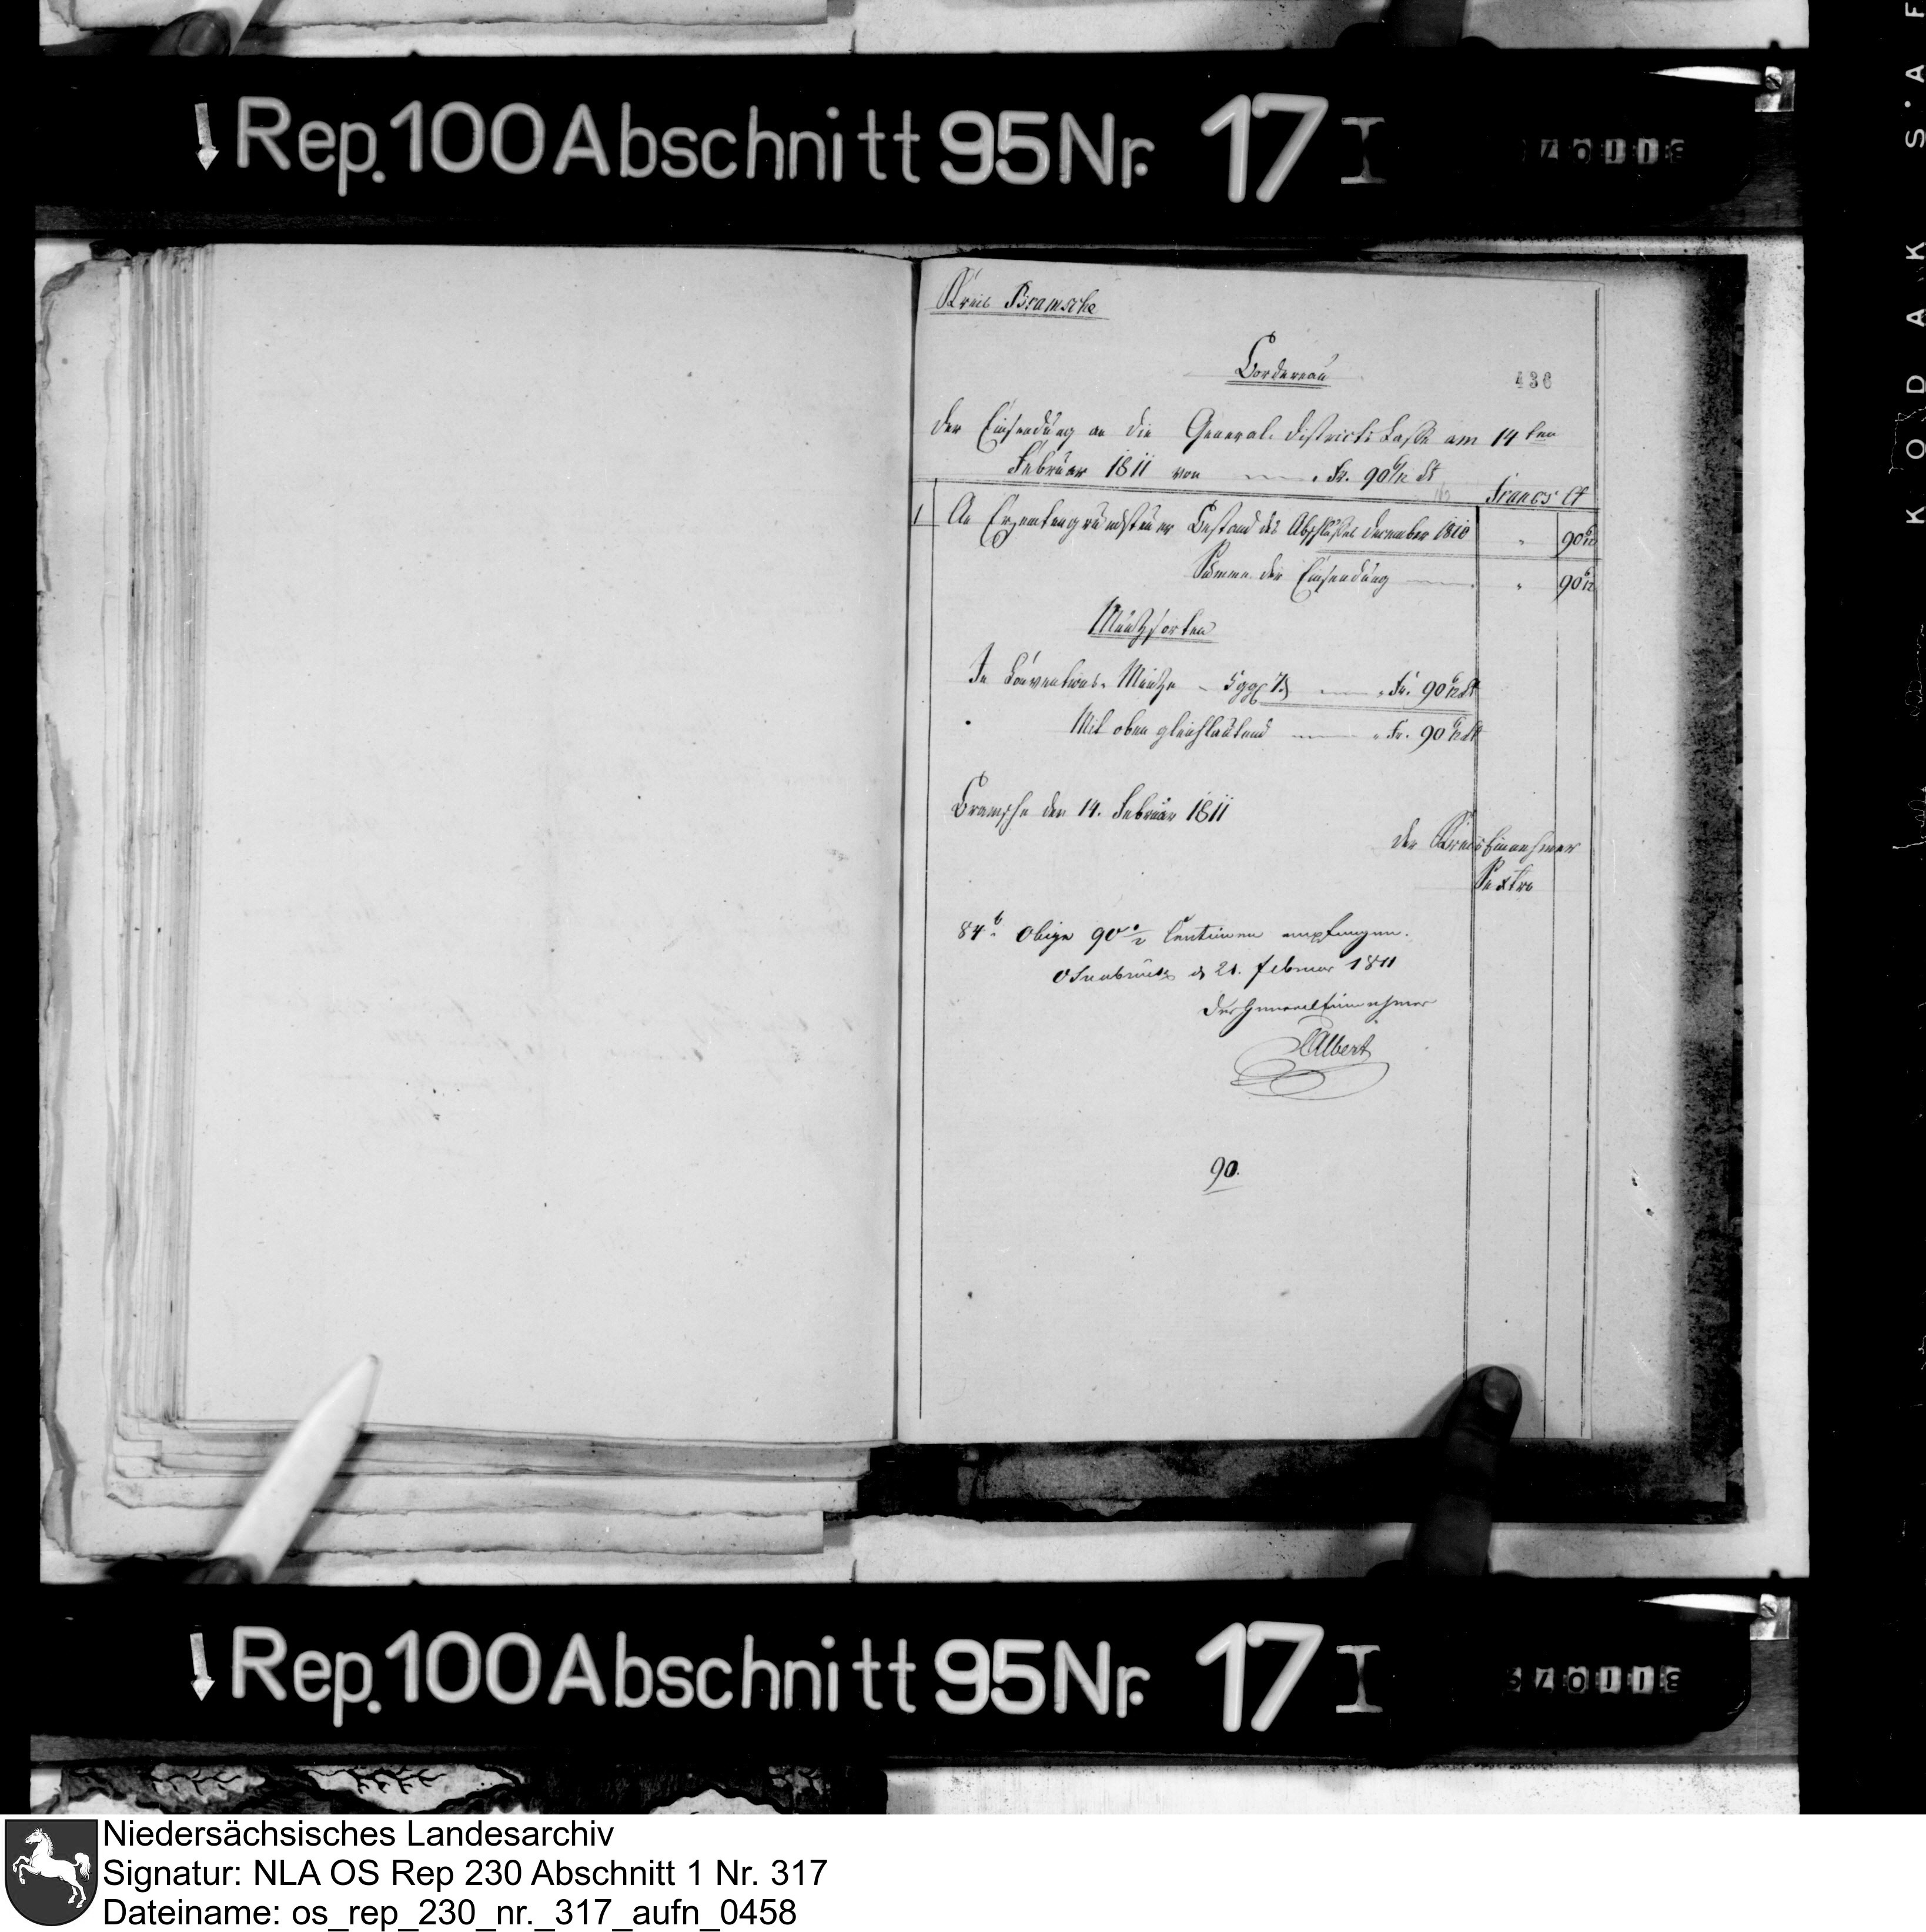 Rep. 100 Abschnitt 95 Nr. 17 I
Kreis Bramsche
Bordereau
436
der Einsendung an die General-Districts Casse am 14ten
Februar 1811 von Fr. 90 6/12 Ct
Francs Ct
1 An Exemtengrundsteuer Bestand des Abschlusses December 1810 " 90 6/12
Summa der Einsendung " 90 6/12
Münzsorten
In Conventions-Münze 5 ggr Fr. 90 6/12 Ct
Mit oben gleichlautend Fr. 90 6/12 Ct
Bramsche den 14. Februar 1811
der Kreis Einnehmer
Sextro
84 b. Obige 90 Centimen empfangen.
Osnabrück d 21. Februar 1811
Der General Einnehmer
Albert
90.
Rep. 100 Abschnitt 95 Nr. 17 I
KODAK S.A.F
Niedersächsisches Landesarchiv
Signatur: NLA OS Rep 230 Abschnitt 1 Nr. 317
Dateiname: os_rep_230_nr._317_aufn_0458